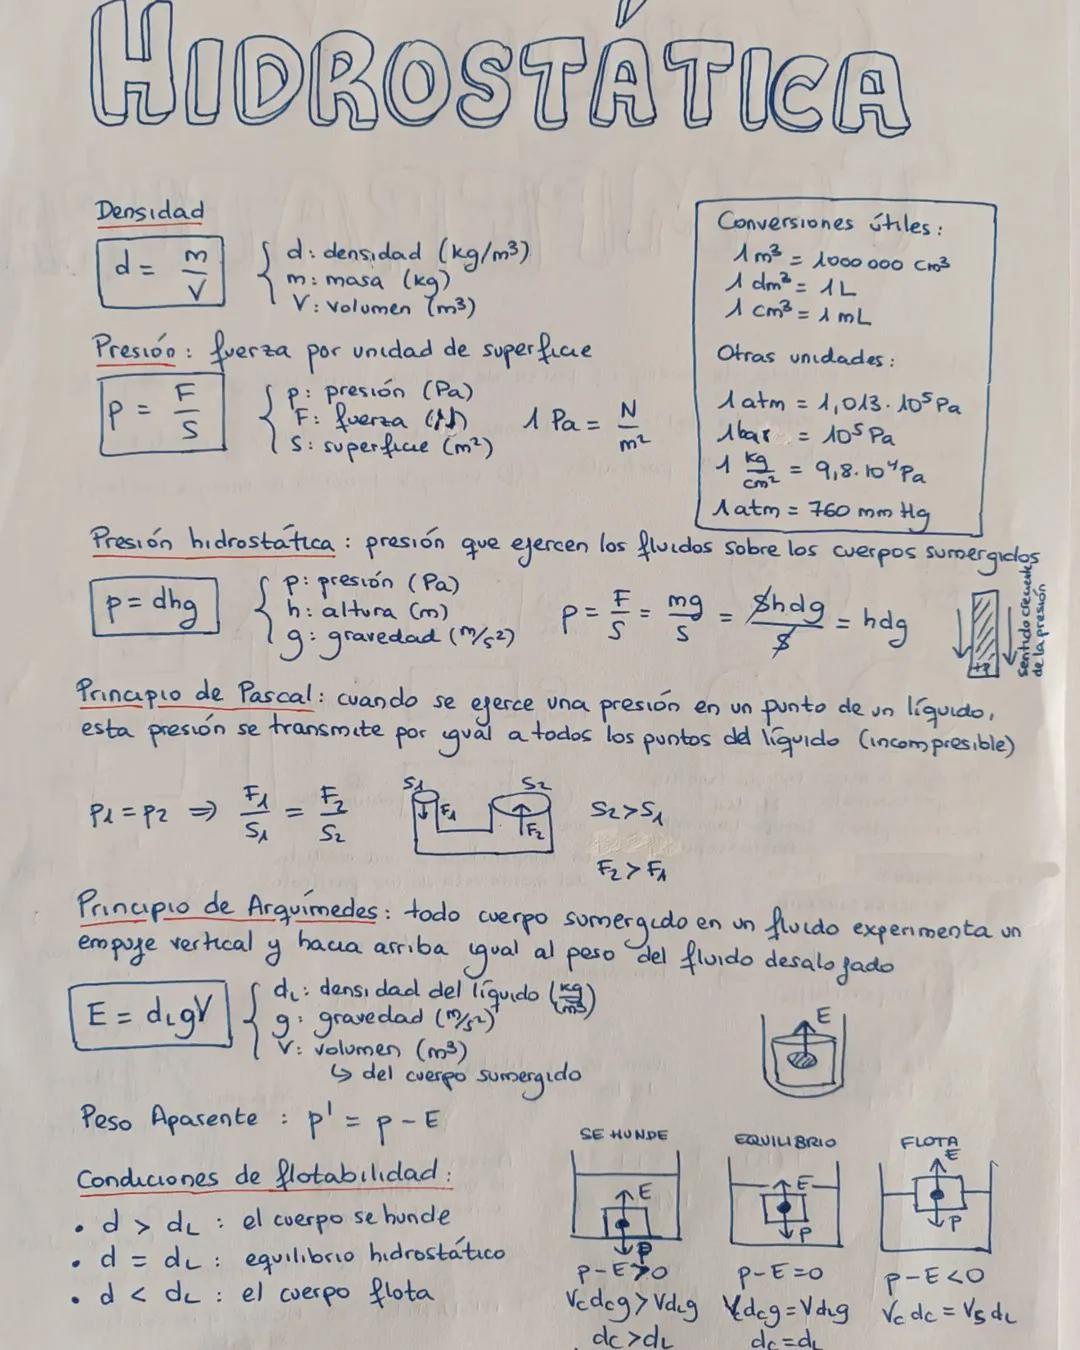 HIDROSTÁTICA
Densidad
d = m/V
d: densidad (kg/m³)
m: masa (kg)
V: volumen (m³)
Conversiones útiles:
1 m³ = 1000 000 cm³
1 dm³ = 1L
1 cm³ = 1 mL
Otras unidades:
1 atm = 1,013·10⁵ Pa
1 bar = 10⁵ Pa
1 kg/cm² = 9,8·10⁴ Pa
1 atm = 760 mm Hg
Presión: fuerza por unidad de superficie
p = F/S
p: presión (Pa)
F: fuerza (N)
S: superficie (m²)
1 Pa = N/m²
Presión hidrostática: presión que ejercen los fluidos sobre los cuerpos sumergidos
p = dhg
p: presión (Pa)
h: altura (m)
g: gravedad (m/s²)
p = F/S = mg/S = Shdg/S = hdg
+p
Sentido creciente
de la presión
Principio de Pascal: cuando se ejerce una presión en un punto de un líquido,
esta presión se transmite por igual a todos los puntos del líquido (incompresible)
p1 = p2 ⇒ F1/S1 = F2/S2
S1 F1 S2 F2
S2 > S1
F2 > F1
Principio de Arquímedes: todo cuerpo sumergido en un fluido experimenta un
empuje vertical y hacia arriba igual al peso del fluido desalojado
E = dLgV
dL: densidad del líquido (kg/m³)
g: gravedad (m/s²)
V: volumen (m³)
↳ del cuerpo sumergido
E
Peso Aparente : p' = p - E
Condiciones de flotabilidad:
• d > dL : el cuerpo se hunde
• d = dL : equilibrio hidrostático
• d < dL : el cuerpo flota
SE HUNDE
E
P
p-E>0
Vcdcg > VdLg
dc > dL
EQUILIBRIO
E
P
p-E=0
Vcdcg = VdLg
dc = dL
FLOTA
E
P
p-E<0
Vc dc = Vs dL